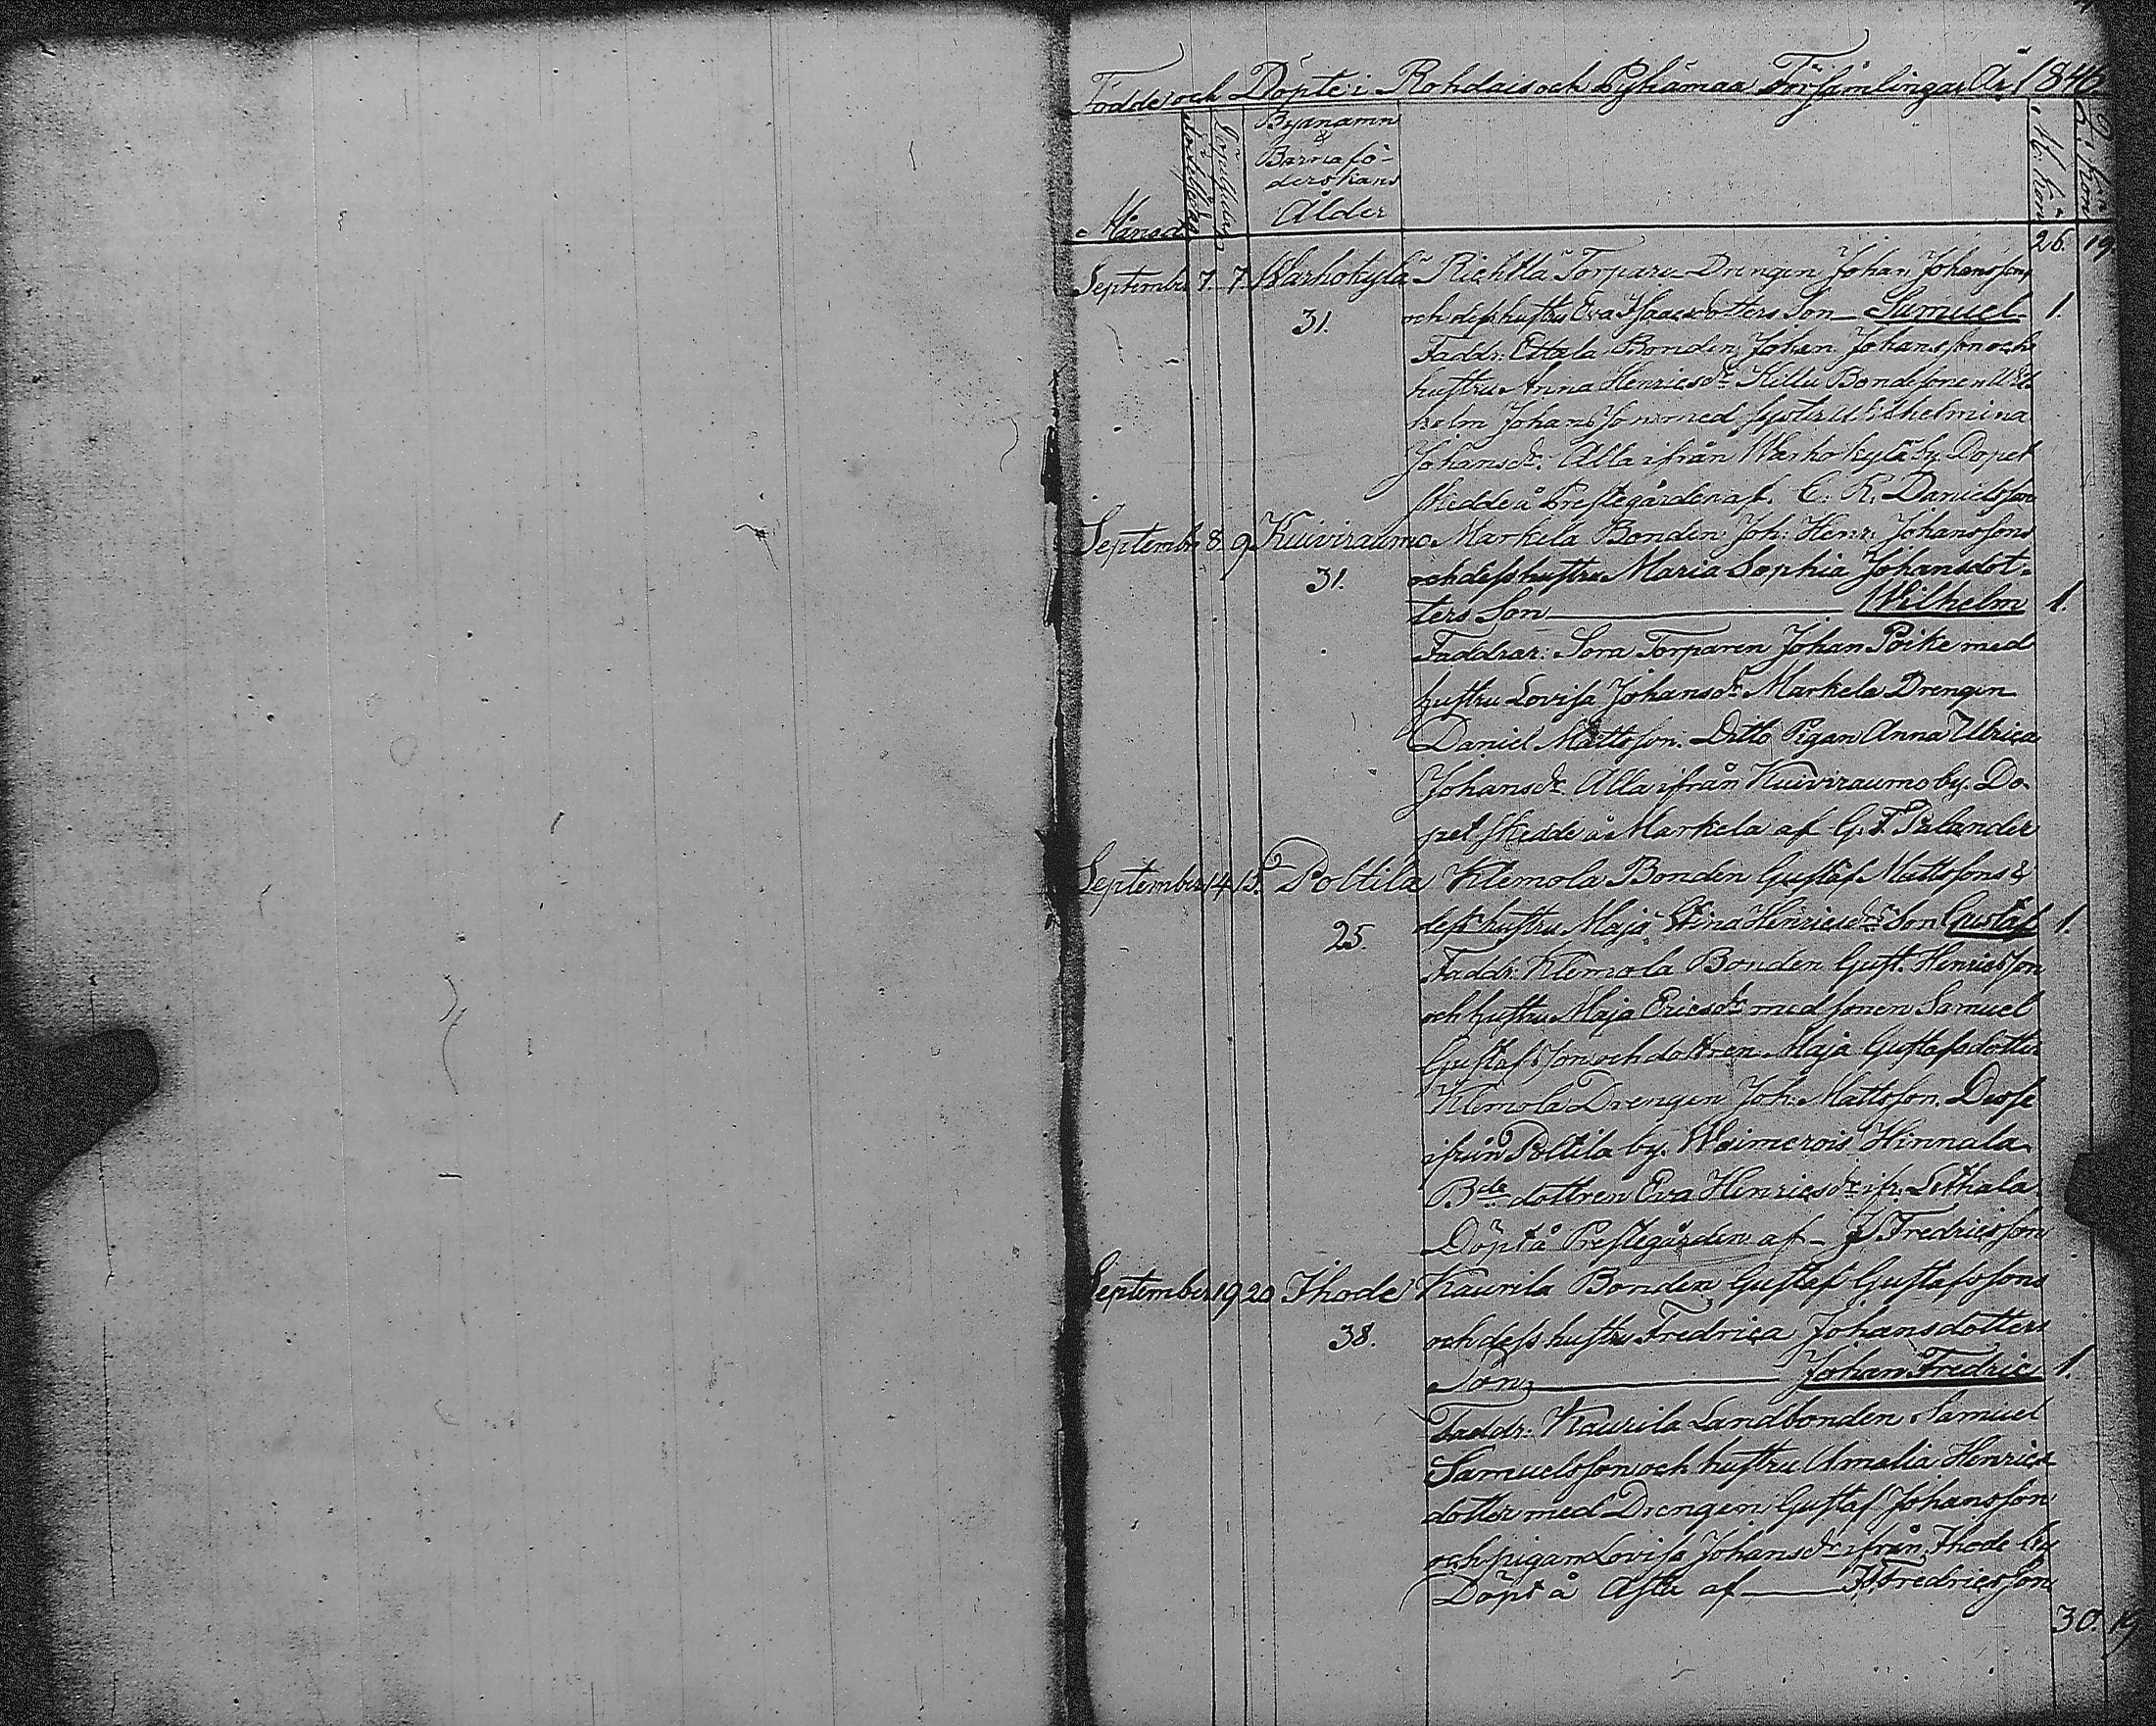 Födde och Döpte i Rohdais och Pyhämaa Församlingar År 1846
Månad
Byanamn & Barnaföderskans Ålder
M. kön
Q. kön
26. 19
September 7. 7. Warhokylä Richtlä Torpare Drengen Johan Johanssons
31. och dess hustru Eva Isaacsdotters Son Samuel 1.
Faddr: Ettala Bonden Johan Johansson och
hustru Anna Henricsdr Killu Bondesonen Wil
helm Johansson med Syster Wilhelmina
Johansdr. Alla ifrån Warhokylä by. Dopet
skedde å Prestegården af C. R. Danielsson
September 8. 9 Kuiviraumo Markela Bonden Joh: Henr: Johanssons
31. och dess hustru Maria Sophia Johansdot-
ters Son Wilhelm 1.
Faddrar: Sora Torparen Johan Poike med
hustru Lovisa Johansdr Markela Drengen
Daniel Mattsson. Ditto Pigan Anna Ulrica
Johansdr. Alla ifrån Kuiviraumo by. Do-
pet skedde å Markela af G. F.
September 14 15. Poltila Klemola Bonden Gustaf Mattssons &
25. dess hustru Maja Stina Henricsdrs Son Gustaf 1.
Faddr: Klemola Bonden Gust. Henricsson
och hustru Maja Ericsdr med sonen Samuel
Gustafsson och dottren Maja Gustafsdotter
Klemola Drengen Joh: Mattsson. Desse
ifrån Poltila by. Waimerois Hinnala
Bde dottren Eva Henricsdr ifr. Lethala.
Döpt å Prestegården af - Fredricsson
September 19 20 Ihode Kaurila Bonden Gustaf Gustafssons
38. och dess hustru Fredrica Johansdotters
Son, Johan Fredric 1.
Faddr: Kaurila Landbonden Samuel
Samuelsson och hustru Amalia Henrics
dotter med Drengen Gustaf Johansson
och pigan Lovisa Johansdr ifrån Ihode by
Döpt å af Fredricsson
30. 19